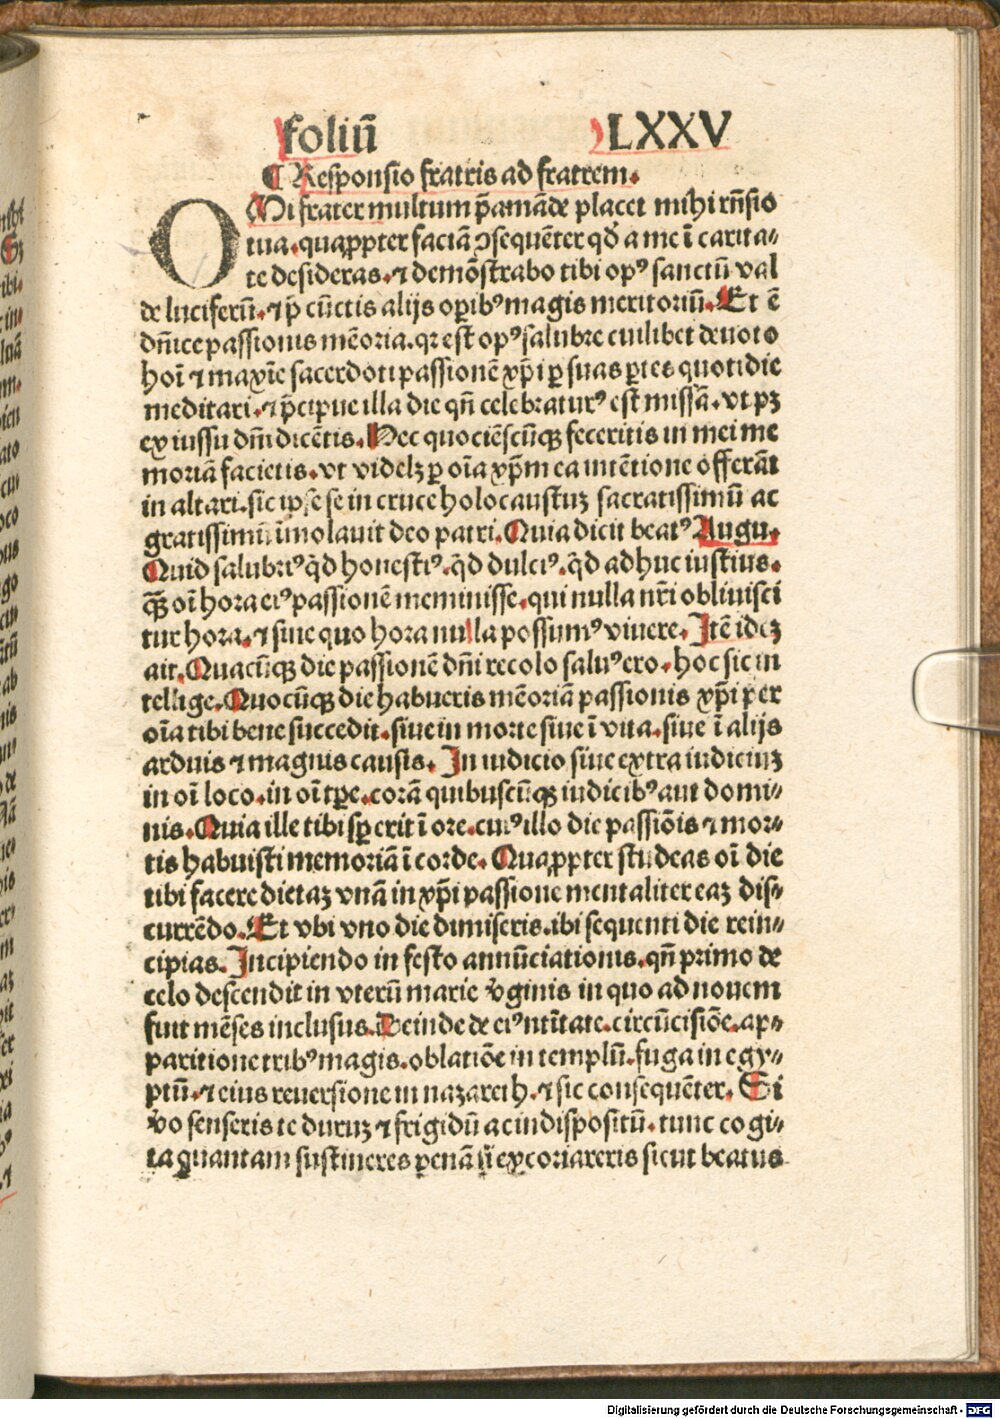 foliū LXXV
¶ Responsio fratris ad fratrem.
OMi frater multum p̄amāde placet mihi rn̄sio
tua. quapp̱ter faciā ꝯsequēter qd̓ a me ī carita⸗
te desideras. ⁊ demōstrabo tibi opꝰ sanctū val
de luciferū. ⁊ p̄ cūctis alijs oꝑibꝰ magis meritoriū. Et ē
dn̄ice passionis mēoria. qꝛ est opꝰ salubre cuilibet deuoto
hoı̄ ⁊ maxı̄e sacerdoti passionē xp̄i ꝑ suas ꝑtes quotidie
meditari. ⁊ p̄cipue illa die qn̄ celebraturꝰ est missā. vt pꝫ
ex iussu dn̄i dicētis. Hec quociēscūqꝫ feceritis in mei me
moriā facietis. vt videlꝫ ꝑ oı̄a xp̄m ea intētione offerāt
in altari. sic ipse se in cruce holocaustuꝫ sacratissimū ac
gratissimū īmolauit deo patri. Quia dicit beatꝰ Augu.
Quid salubriꝰ qͥd honestiꝰ. qͥd dulciꝰ. qͥd adhuc iustius.
qꝫ̄ oı̄ hora eiꝰ passionē meminisse. qui nulla nr̄i obliuisci
tur hora. ⁊ sine quo hora nulla possumꝰ viuere. Itē ideꝫ
ait. Quacūqꝫ die passionē dn̄i recolo saluꝰ ero. hoc sic in
tellige. Quocūqꝫ die habueris mēoriā passionis xp̄i ꝑ er
oı̄a tibi bene succedit. siue in morte siue ī vita. siue ī alijs
arduis ⁊ magnis causis. In iudicio siue extra iudiciuꝫ
in oı̄ loco. in oı̄ tꝑe. corā quibuscūqꝫ iudicibꝰ aut domi⸗
nis. Quia ille tibi sꝑ erit ī ore. cuiꝰ illo die passiōis ⁊ mor⸗
tis habuisti memoriā ī corde. Quapp̱ter studeas oı̄ die
tibi facere dietaꝫ vnā in xp̄i passione mentaliter eaꝫ dis⸗
currēdo. Et vbi vno die dimiseris. ibi sequenti die rein⸗
cipias. Incipiendo in festo annūciationis. qn̄ primo de
celo descendit in vterū marie v̓ginis in quo ad nouem
fuit mēses inclusus. Deinde de eiꝰ ntı̄tate. circūcisiōe. ap⸗
paritione tribꝰ magis. oblatiōe in templū. fuga in egy⸗
ptū. ⁊ eius reuersione in nazareth. ⁊ sic consequēter. Si
v̓o senseris te duruꝫ ⁊ frigidū ac indispositū. tunc cogi⸗
ta quantam sustineres penā si excoriareris sicut beatus
Digitalisierung gefördert durch die Deutsche Forschungsgemeinschaft - DFG